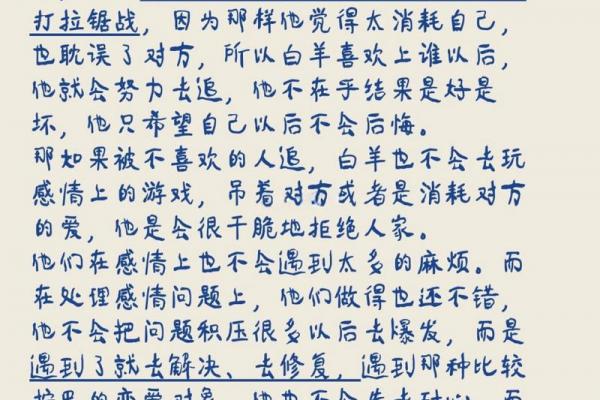 打拉锯战，因为那样他觉得太消耗自己，
也耽误了对方，所以白羊喜欢上谁以后，
他就会努力去追，他不在乎结果是好是
坏，他只希望自己以后不会后悔。
那如果被不喜欢的人追，白羊也不会去玩
感情上的游戏，吊着对方或者是消耗对方
的爱，他是会很干脆地拒绝人家。
他们在感情上也不会遇到太多的麻烦。而
在处理感情问题上，他们做得也还不错，
他不会把问题积压很多以后去爆发，而是
遇到了就去解决、去修复，遇到那种比较
的恋爱对象，他也不会失去耐心，而